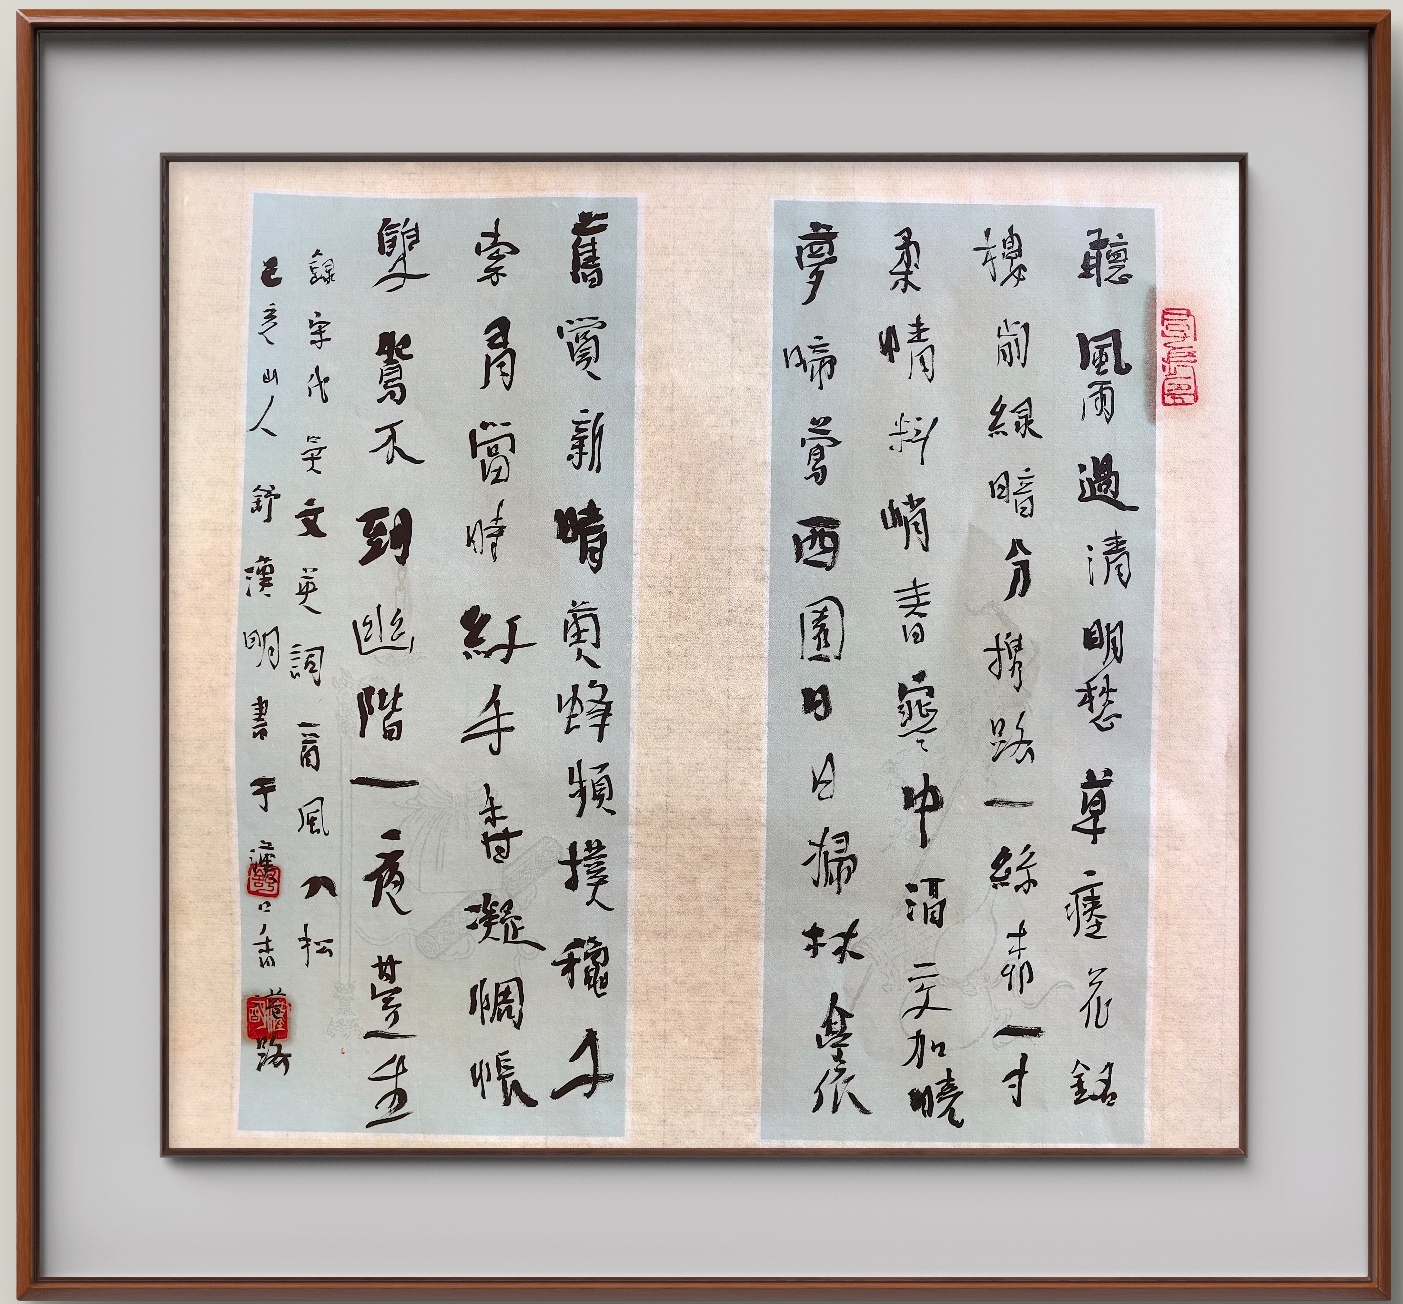 聽風雨過清明愁草瘞花銘
樓前綠暗分攜路一絲柳一寸
柔情料峭春寒中酒交加曉
夢啼鶯西園日日掃林亭依
舊賞新晴黃蜂頻撲穐千
索有當時紅手香凝惆悵
雙鴛不到幽階一夜苔生
錄宋代吳文英詞一首風入松
己亥山人舒漢明書于漢口香港路